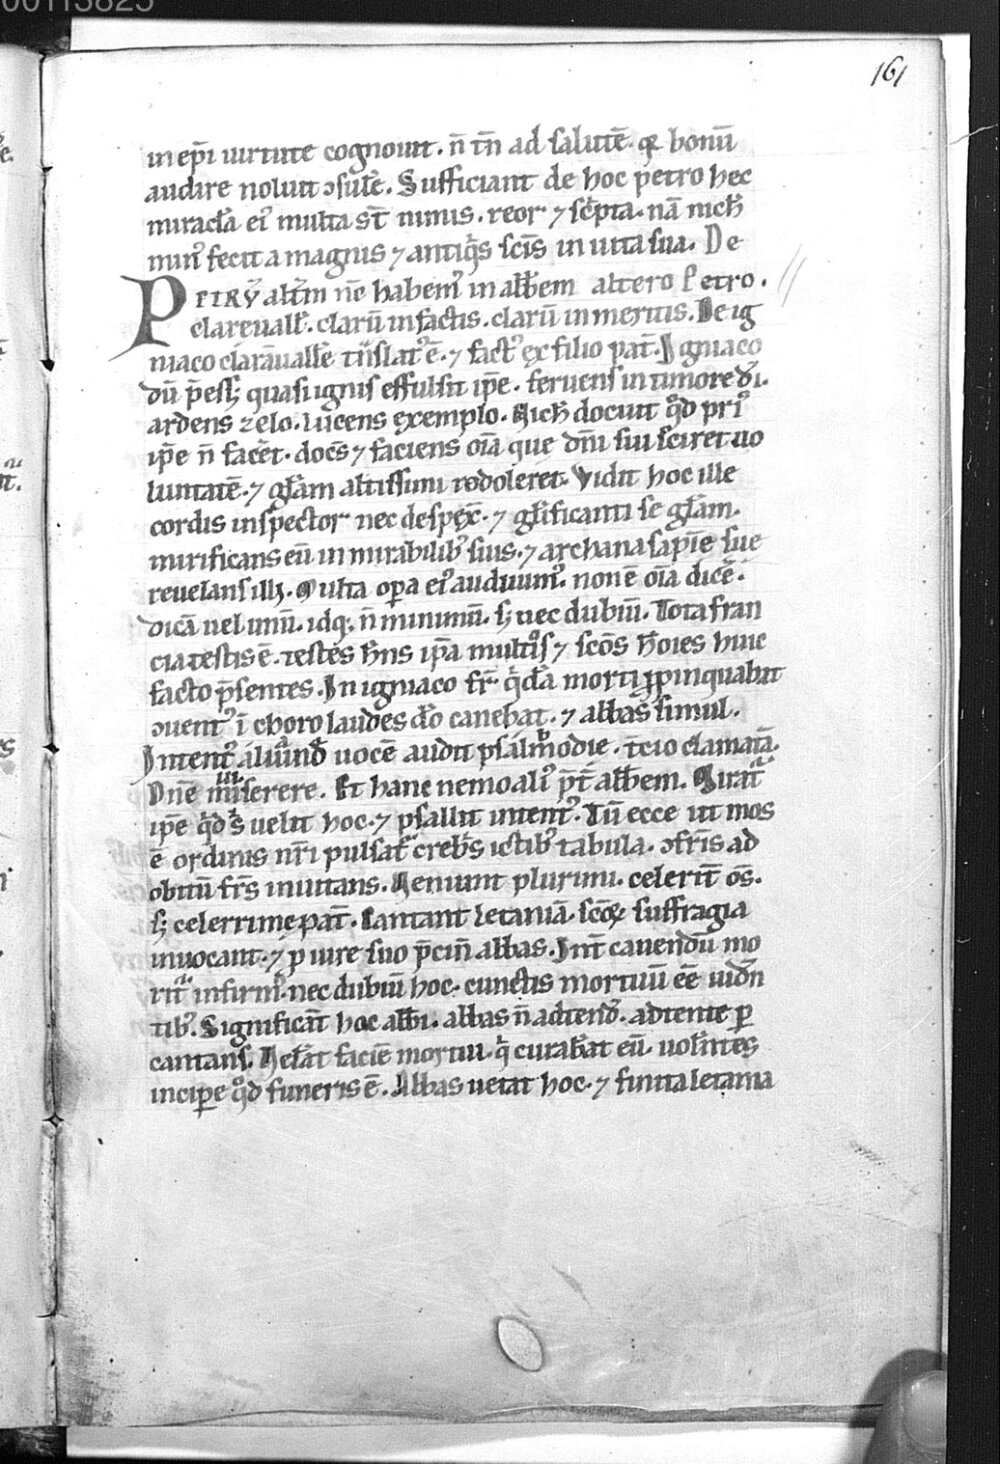 00113825
161
in ep̄i uirtute cognouit. n̄ tn̄ ad salutē. qꝛ bonū
audire noluit ↄsulē. Sufficiant de hoc petro hec
miracl̓a ei᷒ multa st̄ nimis. reor ⁊ sc̓pta. nā nich̄
min᷒ fecit a magnis ⁊ antiq̓s scīs in uita sua. De
PETRŪ alt̓m nc̄ habem᷒ in abb̄em altero Petro.
clareuall̓. clarū in factis. clarū in meritis. De ig
niaco clarāuall̓e tn̄slat᷒ ē. ⁊ fact᷒ ex filio pat̄. Igniaco
dū p̄ess& quasi ignis effulsit ip̄e. feruens in timore dī.
ardens zelo. lucens exemplo. Nich̄ docuit q̊d pri᷒
ip̄e n̄ fac̓et. docēs ⁊ faciens oīa que dn̄i sui sciret uo
luntatē. ⁊ gl̄am altissimi redoleret. Vidit hoc ille
cordis inspector nec despex̄. ⁊ gl̄ificanti se gl̄am.
mirificans eū in mirabilib᷒ suis. ⁊ archana sapīe sue
reuelans illi. Multa op̄a ei᷒ audiuim᷒. non ē oīa dicē.
dicā uel unū. idq;. n̄ minimū. s; nec dubiū. Tota fran
cia testis ē. testes h̄ns ip̄a mult̊s ⁊ scōs h̄oies huic
facto p̄sentes. In igniaco fr̄ q̓dā morti ꝓpinquabat
ↄuent᷒ ī choro laudes dō canebat. ⁊ abbas simul.
Intent᷒ uocē audit psalmodie. t̄cio clamatā.
Dn̄e miserere. Et hanc nemo ali᷒ p̄t̄ abb̄em. Mirat̄
ip̄e q̓d s̓ uelit hoc. ⁊ psallit intent᷒. Tū ecce ut mos
ē ordinis nr̄i pulsat̄ creb̓s ictib᷒ tabula. ↄfr̄s ad
obitū fr̄s inuitans. Ueniunt plurimi. celerit̄ oē̄s.
s; celerrime pat̄. Cantant letaniā. scōꝝ suffragia
inuocant. ⁊ p iure suo p̄cin̄ abbas. Int̄ cauendū mo
rit̄ infirm᷒. nec dubiū hoc. cunctis mortuū eē uidn̄
tib᷒. Significāt hoc abb̄i. abbas n̄ adtend̓. adtente ꝑ
cantans. Uel̓at faciē mortui. q̓ curab̄at eū. uol̄ntes
incipe q̊d funeris ē. Abbas uetat hoc. ⁊ finita letania